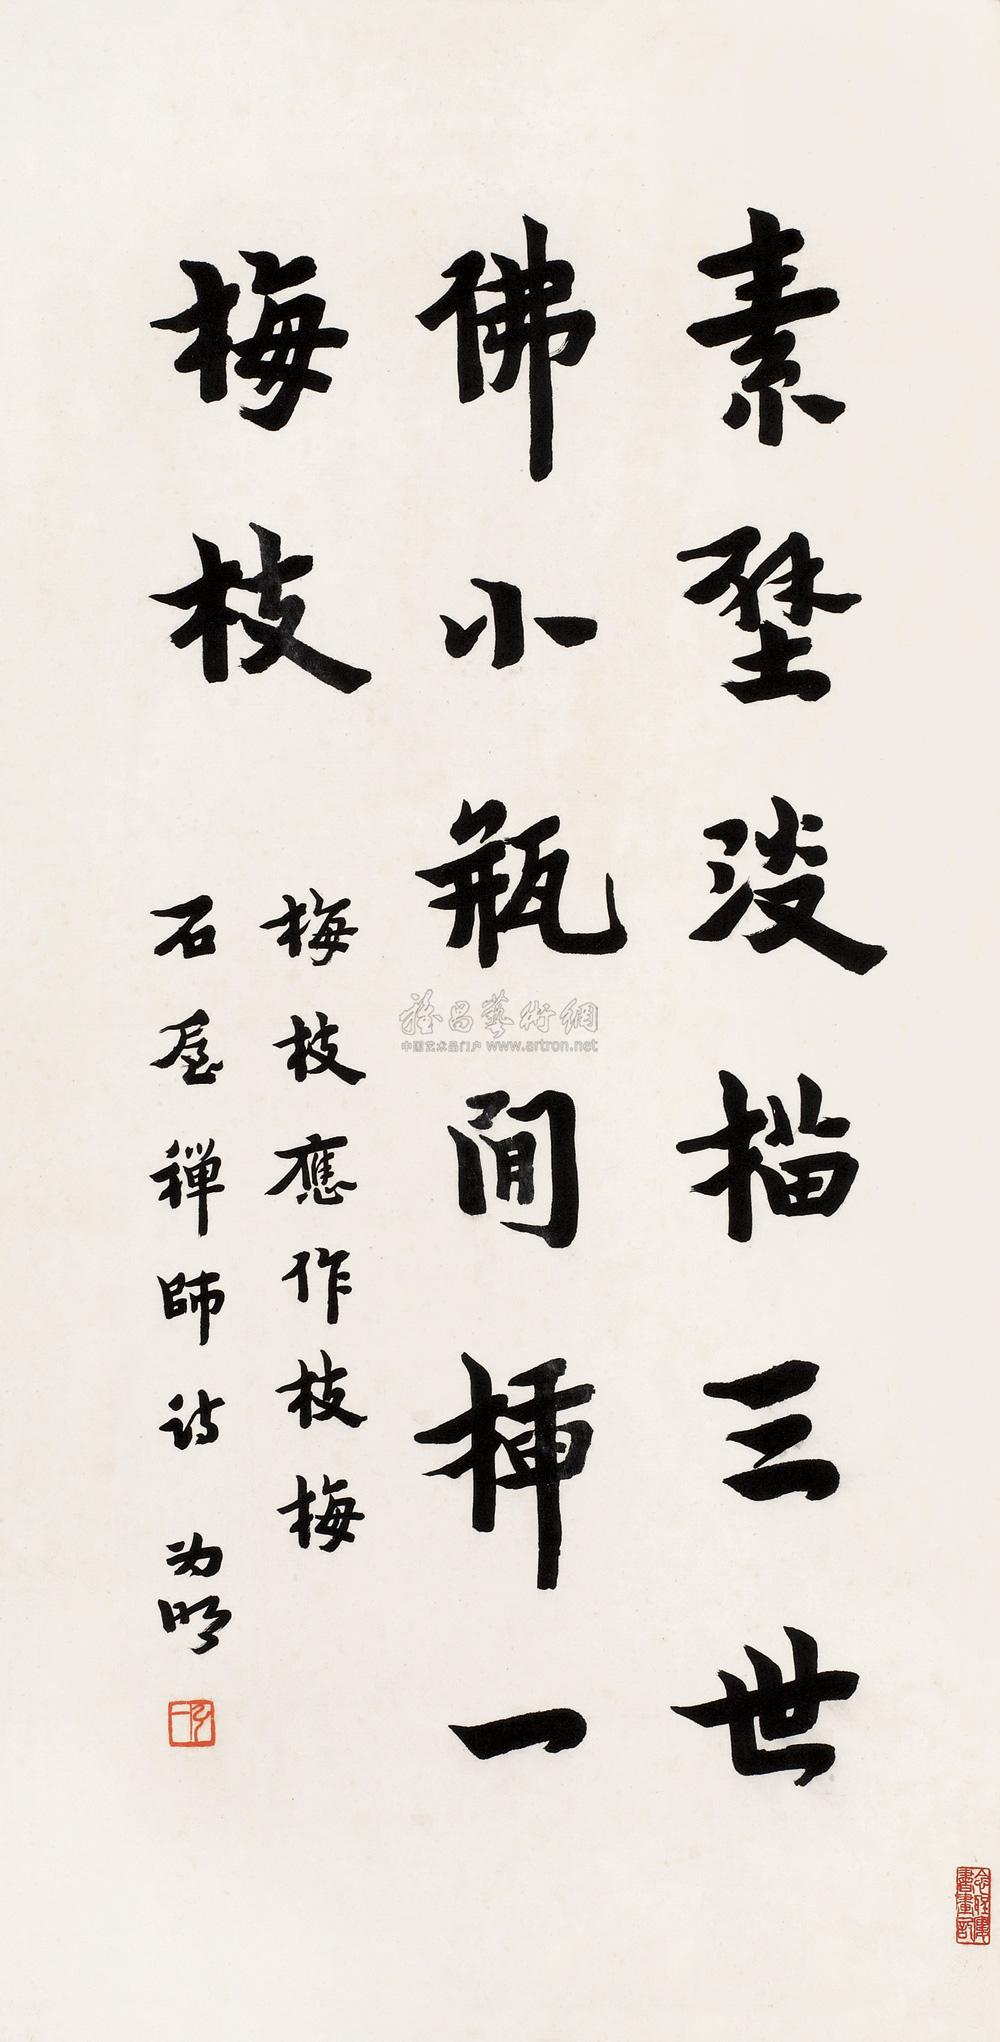 素壁淡描三世
佛小瓶閒插一
梅枝
梅枝應作枝梅
石屋禪師詩 為明
雅昌藝術網
中国艺术品门户 www.artron.net